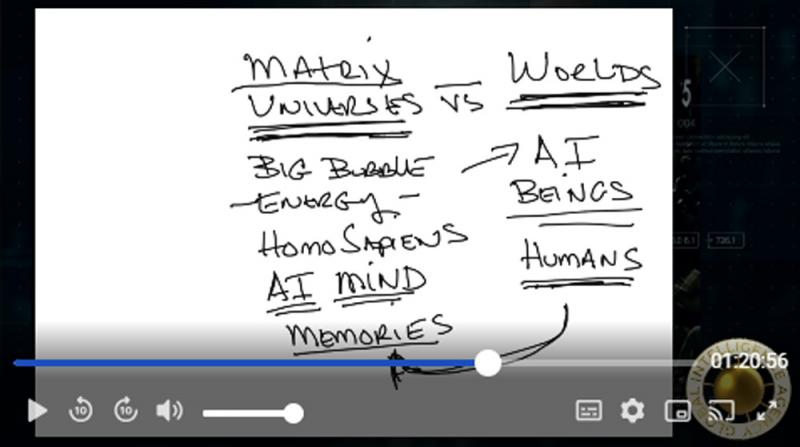 MATRIX
UNIVERSES VS WORLDS
BIG BUBBLE
- ENERGY -
HOMO SAPIENS
AI MIND
MEMORIES
AI
BEINGS
HUMANS
01:20:56
10
10
GLOBAL INTELLIGENCE AGENCY